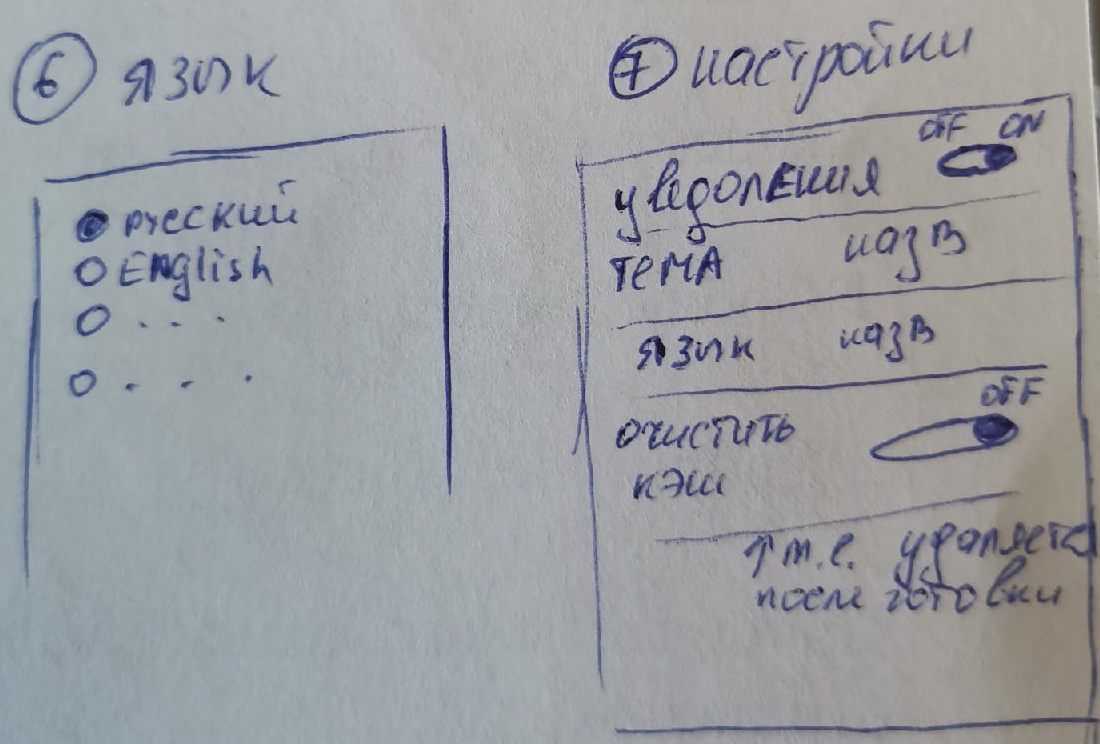 6 язык
русский
English
. . .
. . .
7 настройки
OFF ON
уведомления
тема назв
язык назв
OFF
очистить
кэш
↑ т.е. удаляется
после готовки